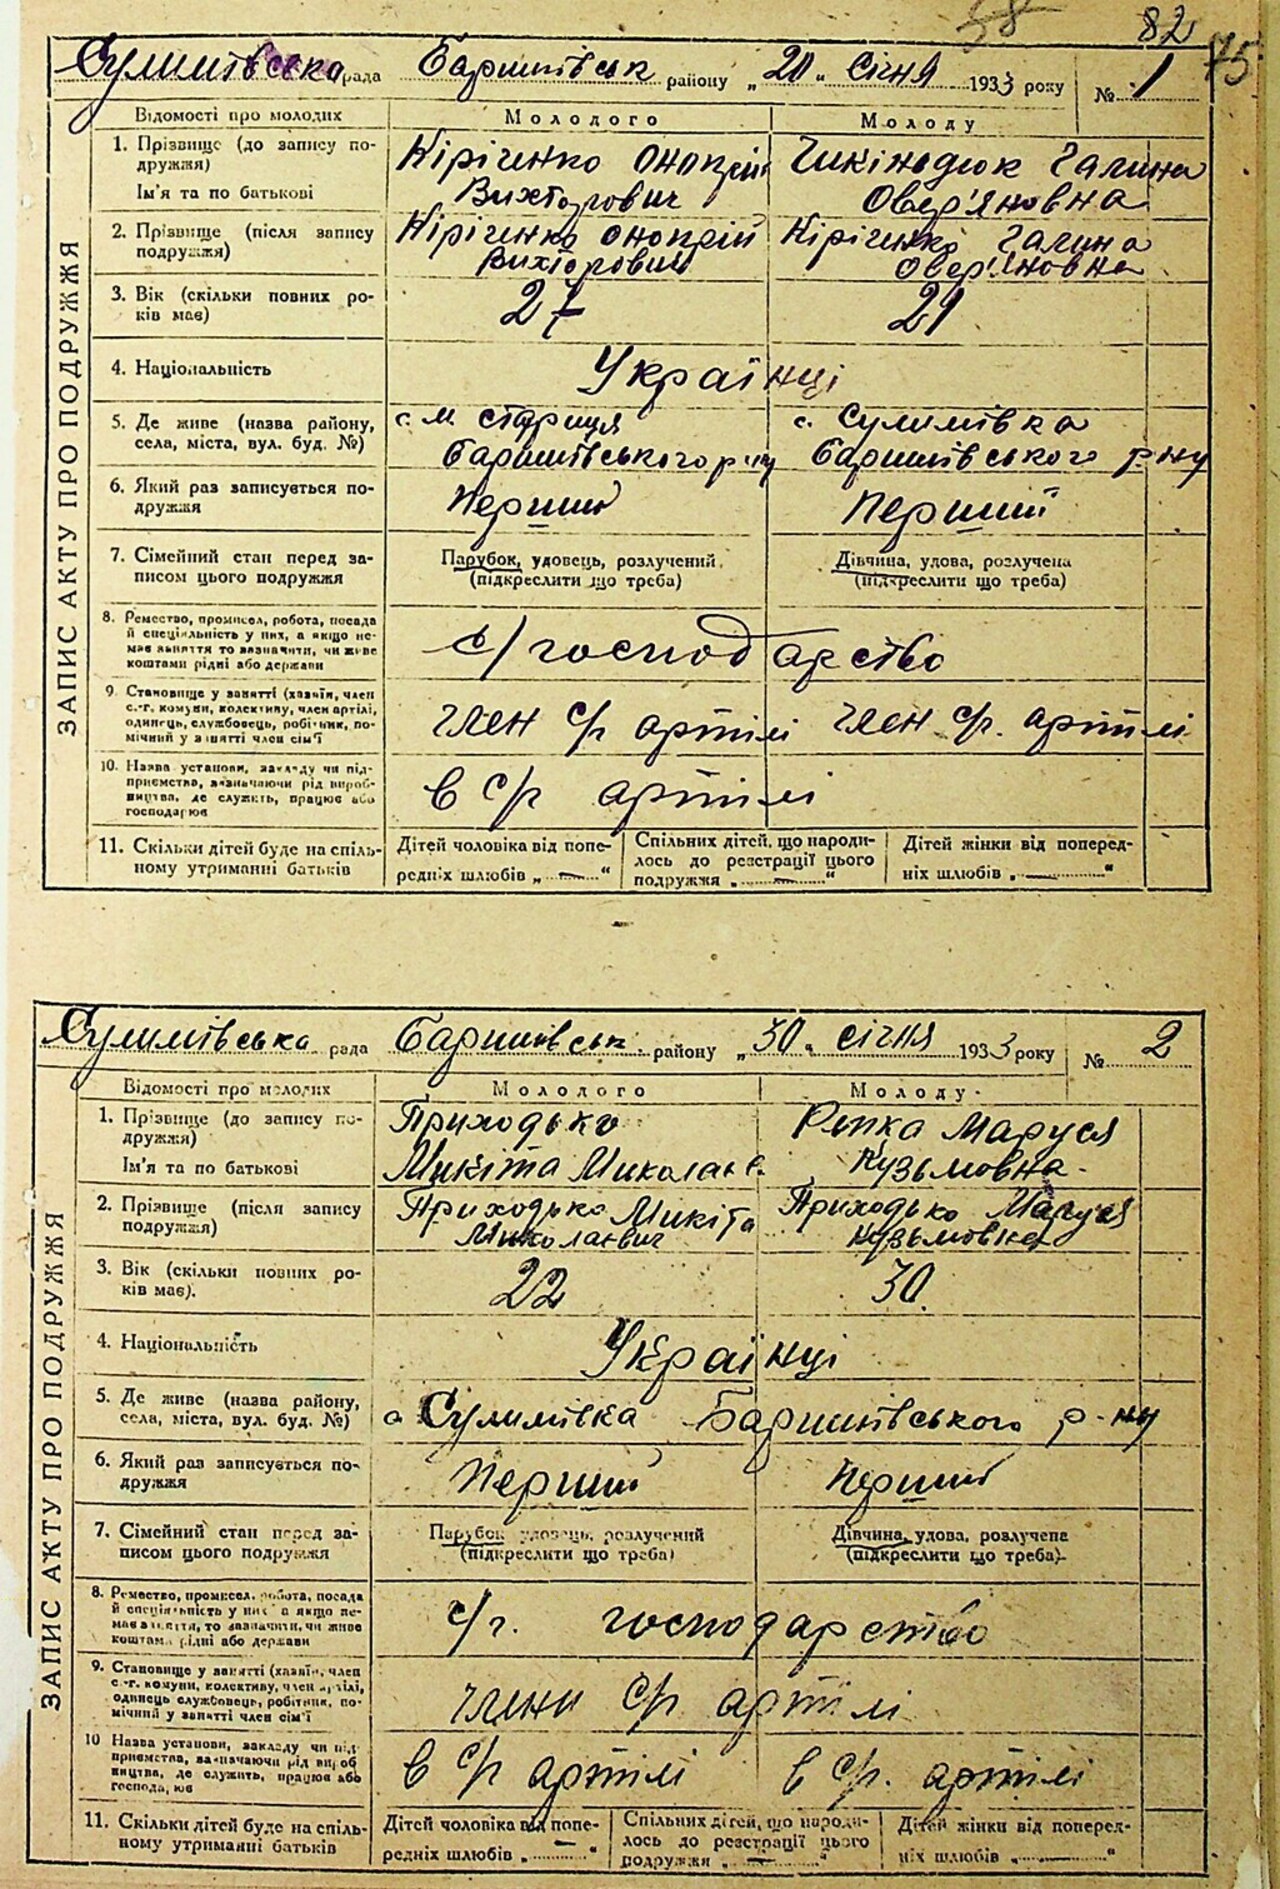 58 82
75
Сулимівська рада Баришівськ району „20„ Січня 1933 року № 1
ЗАПИС АКТУ ПРО ПОДРУЖЖЯ
Відомості про молодих Молодого Молоду
1. Прізвище (до запису по- Кіріченко Онопрій Галина
дружжя)
Ім'я та по батькові Вихторович Овер'яновна
2. Прізвище (після запису Кіріченко Онопрій Кіріченко Галина
подружжя) Вихторович Овер'яновна
3. Вік (скільки повних ро- 27 21
ків має)
4. Національність Українці
5. Де живе (назва району, с. М Стариця с. Сулимівка
села, міста, вул. буд. №) Баришівського р-ну Баришівського р-ну
6. Який раз записується по- Перший Перший
дружжя
7. Сімейний стан перед за- Парубок, удовець, розлучений. Дівчина, удова, розлучена
писом цього подружжя (підкреслити що треба) (підкреслити що треба)
8. Ремество, промисел, робота, посада
й спеціяльність у них, а якщо не- с/господарство
має заняття то зазначити, чи живе
коштами рідні або держави
9. Становище у занятті (хазяїн, член
с.-г. комуни, колективу, член артілі, член с/г артілі член с/г. артілі
одинець, службовець, робітник, по-
мічний у занятті член сім'ї
10. Назва установи, закладу чи під-
приємства, зазначаючи рід вироб- в с/г артілі
ництва, де служить, працює або
господарює
11. Скільки дітей буде на спіль- Дітей чоловіка від попе- Спільних дітей, що народи- Дітей жінки від поперед-
ному утриманні батьків редніх шлюбів „ — “ лось до реєстрації цього ніх шлюбів „ — “
подружжя „ — “
Сулимівська рада Баришівськ. району „30„ січня 1933 року № 2
ЗАПИС АКТУ ПРО ПОДРУЖЖЯ
Відомості про молодих Молодого Молоду
1. Прізвище (до запису по- Приходько Ріпка Маруся
дружжя)
Ім'я та по батькові Микіта Миколаїв. Кузьмовна
2. Прізвище (після запису Приходько Микіта Приходько Маруся
подружжя) Миколаєвич Кузьмовна
3. Вік (скільки повних ро- 22 30
ків має).
4. Національність Українці
5. Де живе (назва району, с Сулимівка Баришівського р-ну
села, міста, вул. буд. №)
6. Який раз записується по- Перший Перший
дружжя
7. Сімейний стан перед за- Парубок удовець, розлучений Дівчина, удова, розлучена
писом цього подружжя (підкреслити що треба) (підкреслити що треба)
8. Ремество, промисел, робота, посада
й спеціяльність у них а якщо не- с/г. господарство
має заняття, то зазначити, чи живе
коштами рідні або держави
9. Становище у занятті (хазяїн, член
с.-г. комуни, колективу, член артілі, члени с/г артілі
одинець службовець, робітник, по-
мічний у занятті член сім'ї
10 Назва установи, закладу чи під
приємства, зазначаючи рід вироб в с/г артілі в с/г. артілі
ництва, де служить, працює або
господарює
11. Скільки дітей буде на спіль- Дітей чоловіка від попе- Спільних дітей, що народи- Дітей жінки від поперед-
ному утриманні батьків редніх шлюбів „ — “ лось до реєстрації цього ніх шлюбів „ — “
подружжя „ — “